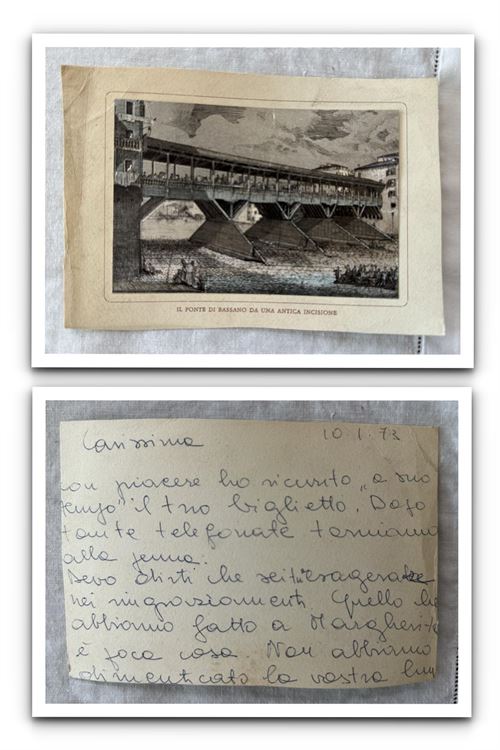 IL PONTE DI BASSANO DA UNA ANTICA INCISIONE
Carissima
10.1.73
con piacere ho ricevuto "a suo
tempo" il tuo biglietto. Dopo
tante telefonate torniamo
alla penna.
Devo dirti che sei
nei ringraziamenti. Quello che
abbiamo fatto a Margherita
è poca cosa. Non abbiamo
dimenticato la vostra